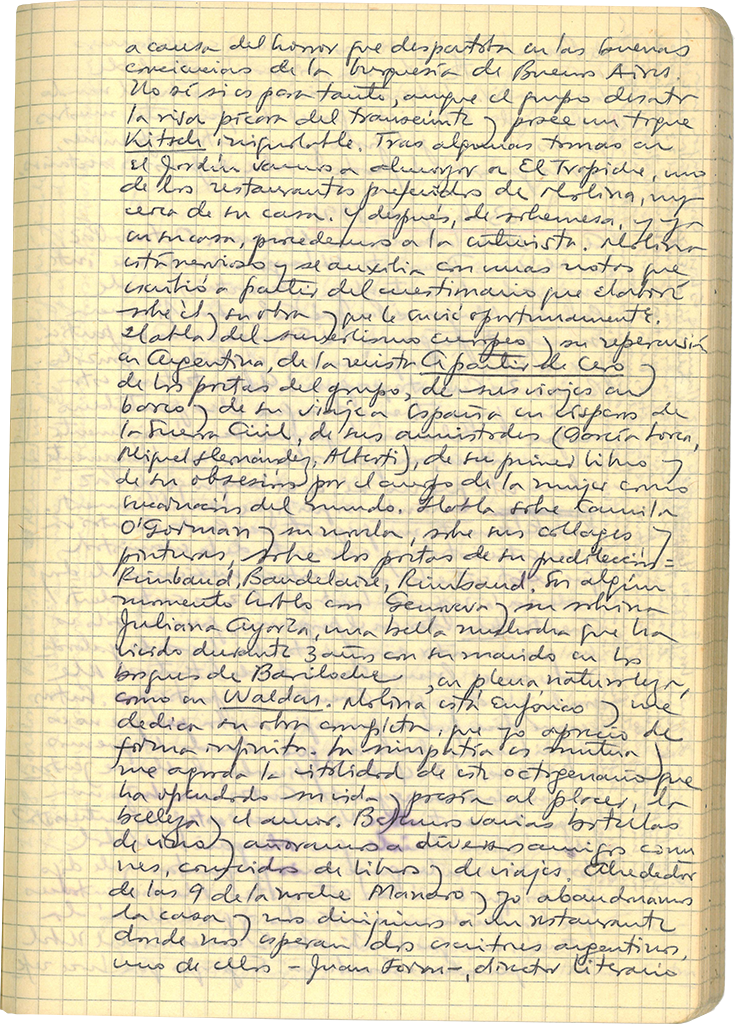 a causa del horror que despertaba en las buenas
conciencias de la burguesía de Buenos Aires.
No sé si es para tanto, aunque el grupo desata
la risa pícara del transeúnte y posee un toque
Kitsch inigualable. Tras algunas tomas en
el Jardín vamos a almorzar a El Tropiche, uno
de los restaurantes preferidos de Molina, muy
cerca de su casa. Y después, de sobremesa, y ya
en su casa, procedemos a la entrevista. Molina
está nervioso y se auxilia con unas notas que
escribió a partir del cuestionario que elaboré
sobre él y su obra y que le envié oportunamente.
Habla del surrealismo europeo y su repercusión
en Argentina, de la revista A partir de Cero y
de los poetas del grupo, de sus viajes en
barco y de su viaje a España en vísperas de
la Guerra Civil, de sus amistades (García Lorca,
Miguel Hernández, Alberti), de su primer libro y
de su obsesión por el cuerpo de la mujer como
encarnación del mundo. Habla sobre Camila
O'Gorman y su novela, sobre sus collages y
pinturas, sobre los poetas de su predilección=
Rimbaud, Baudelaire, Rimbaud. En algún
momento hablo con Genoveva y su sobrina
Juliana Ayarza, una bella muchacha que ha
vivido durante 3 años con su marido en los
bosques de Bariloche, en plena naturaleza,
como en Walden. Molina está eufórico y me
dedica su obra completa, que yo aprecio de
forma infinita. La simpatía es mutua y
me agrada la vitalidad de este octogenario que
ha ofrendado su vida y poesía al placer, la
belleza y el amor. Bebemos varias botellas
de vino y añoramos a diversos amigos comu
nes, conocidos de libros y de viajes. Alrededor
de las 9 de la noche Mandro y yo abandonamos
la casa y nos dirigimos a un restaurante
donde nos esperan dos escritores argentinos,
uno de ellos – Juan Forn –, director literario